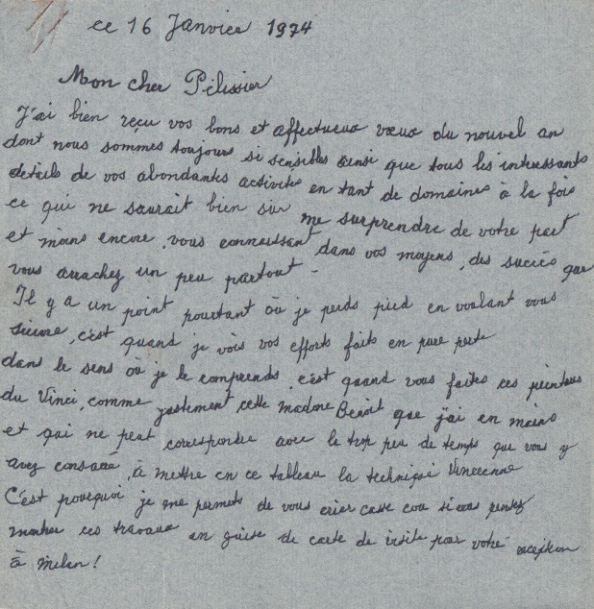 ce 16 Janvier 1974
Mon cher Pélissier
J'ai bien reçu vos bons et affectueux vœux du nouvel an
dont nous sommes toujours si sensibles ainsi que tous les interessants
details de vos abondantes activités en tant de domaines à la fois
ce qui ne saurait bien sûr me surprendre de votre part
et moins encore, vous connaissant dans vos moyens, des succès que
vous arrachez un peu partout -
Il y a un point pourtant où je perds pied en voulant vous
suivre, c'est quand je vois vos efforts faits en pure perte
dans le sens où je le comprends, c'est quand vous faites ces peintures
du Vinci, comme justement cette madone Benoit que j'ai en mains
et qui ne peut correspondre avec le trop peu de temps que vous y
avez consacré, à mettre en ce tableau la technique Vincienne
C'est pourquoi je me permets de vous crier casse cou si vous pensez
montrer ces travaux en guise de carte de visite pour votre reception
à Milan!